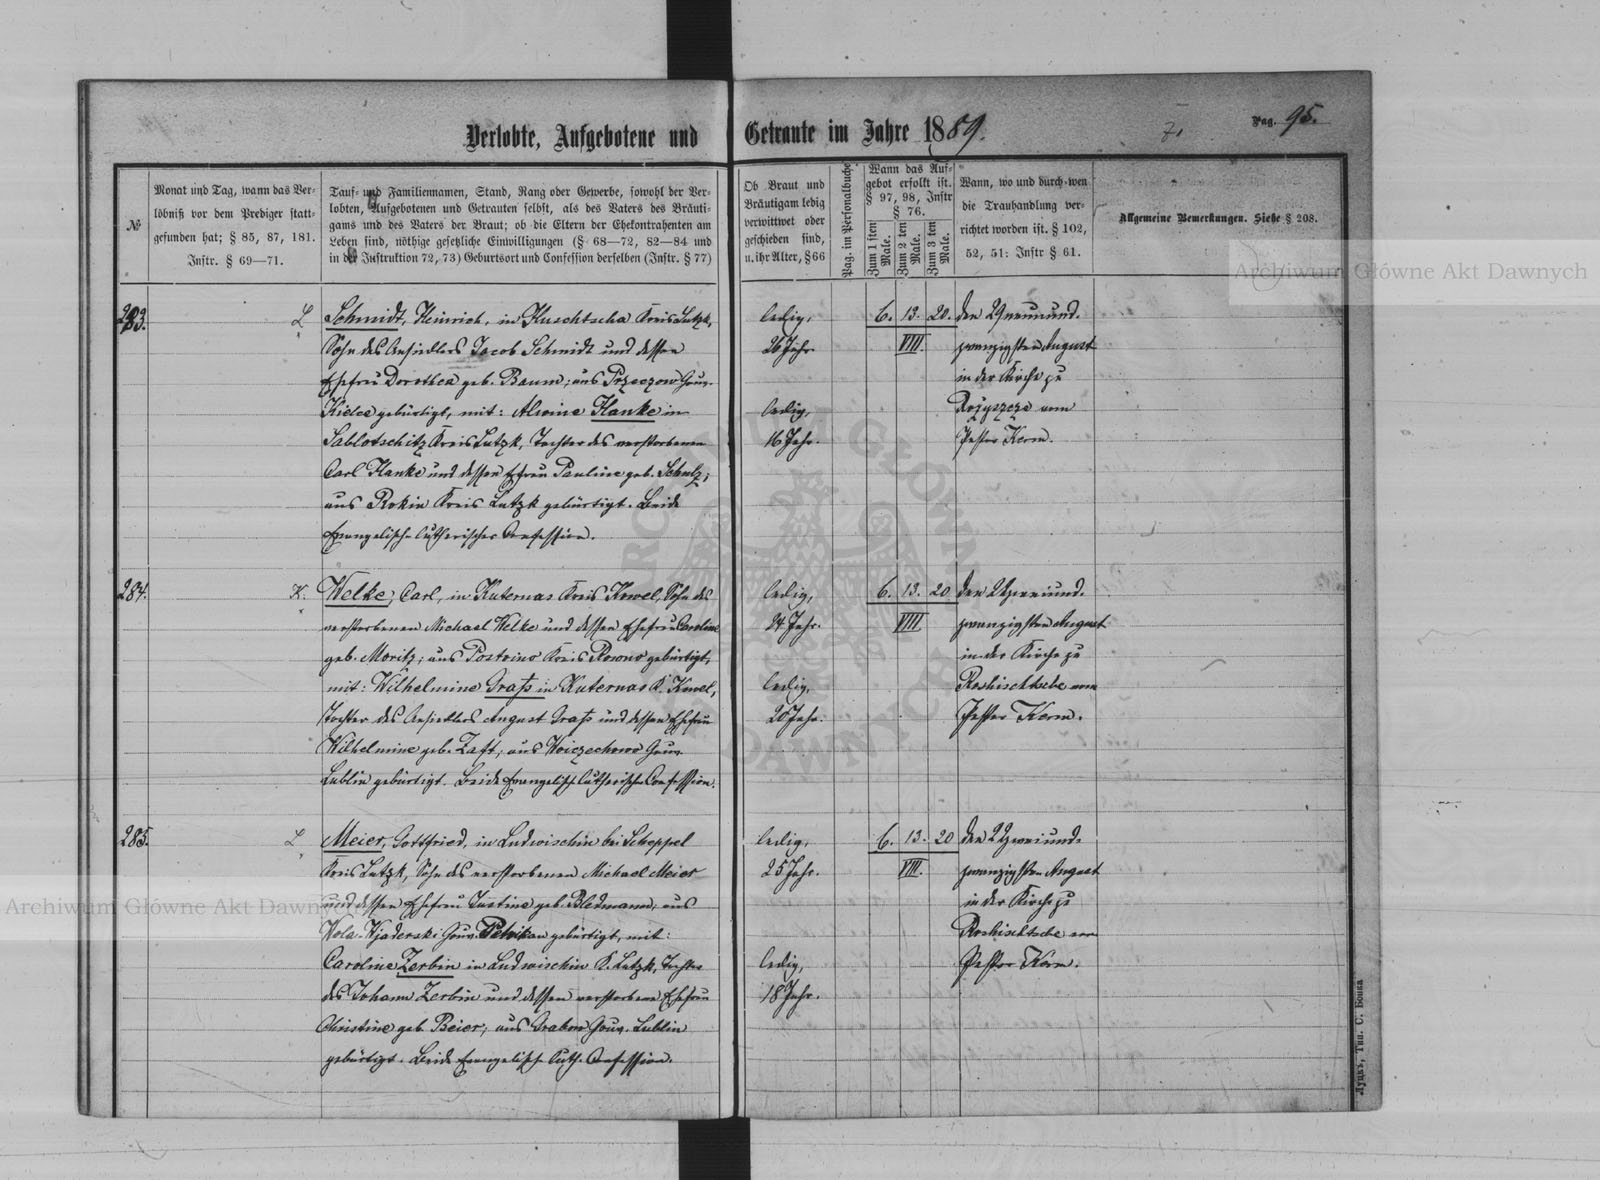 Verlobte, Aufgebotene und Getraute im Jahre 1889.
Pag. 95.
№
Monat und Tag, wann das Ver-
löbniß vor dem Prediger statt-
gefunden hat; § 85, 87, 181.
Instr. § 69—71.
Tauf- und Familiennamen, Stand, Rang oder Gewerbe, sowohl der Ver-
lobten, Aufgebotenen und Getrauten selbst, als des Vaters des Bräuti-
gams und des Vaters der Braut; ob die Eltern der Ehekontrahenten am
Leben sind, nöthige gesetzliche Einwilligungen (§ 68—72, 82—84 und
in der Instruktion 72, 73) Geburtsort und Confession derselben (Instr. § 77)
Ob Braut und
Bräutigam ledig
verwittwet oder
geschieden sind,
u. ihr Alter, § 66
Pag. im Personalbuche
Wann das Auf-
gebot erfolgt ist.
§ 97, 98, Instr
§ 76.
Zum 1 sten Male.
Zum 2 ten Male.
Zum 3 ten Male.
Wann, wo und durch wen
die Trauhandlung ver-
richtet worden ist. § 102,
52, 51: Instr § 61.
Allgemeine Bemerkungen. Siehe § 208.
283.
L
Schmidt, Heinrich, in Kuschtscha Kreis Lutzk,
Sohn des Ansiedlers Jacob Schmidt und dessen
Ehefrau Dorothea geb. Baum; aus Przeczow Gouv.
Kielce gebürtigt, mit: Alwine Hanke in
Sablotschitz Kreis Lutzk, Tochter des verstorbenen
Carl Hanke und dessen Ehefrau Pauline geb. Schulz;
aus Rokin Kreis Lutzk gebürtigt. Beide
Evangelisch-lutherischer Confession.
ledig,
26 Jahr.
ledig,
16 Jahr.
6. 13. 20.
VIII.
den 29 neunund-
zwanzigsten August
in der Kirche zu
Rożyszcze vom
Pastor Kerm.
284.
K.
Welke, Carl, in Kuternas Kreis Kowel, Sohn des
verstorbenen Michael Welke und dessen Ehefrau Caroline
geb. Moritz; aus Postoino Kreis Rowno gebürtigt,
mit: Wilhelmine Graß in Kuternas K. Kowel,
Tochter des Ansiedlers August Graß und dessen Ehefrau
Wilhelmine geb. Zaft; aus Woiczechowo Gouv.
Lublin gebürtigt. Beide Evangelisch-lutherischer Confession.
ledig,
24 Jahr.
ledig,
20 Jahr.
6. 13. 20
VIII.
den 22 zweiund-
zwanzigsten August
in der Kirche zu
Roshischtsche vom
Pastor Kerm.
285.
L
Meier, Gottfried, in Ludwischin bei Scheppel
Kreis Lutzk, Sohn des verstorbenen Michael Meier
und dessen Ehefrau Justine geb. Bledmann, aus
Wola-Wjaderski Gouv. Petrikau gebürtigt, mit:
Caroline Zerbin in Ludwischin K. Lutzk, Tochter
des Johann Zerbin und dessen verstorbene Ehefrau
Christine geb. Beier; aus Grabow Gouv. Lublin
gebürtigt. Beide Evangelisch-Luth. Confession.
ledig,
25 Jahr.
ledig,
18 Jahr.
6. 13. 20
VIII.
den 22 zweiund-
zwanzigsten August
in der Kirche zu
Roshischtsche vom
Pastor Kerm.
Луцкъ, Тип. С. Бонка
Archiwum Główne Akt Dawnych
Archiwum Główne Akt Dawnych
ARCHIWUM GŁÓWNE AKT DAWNYCH